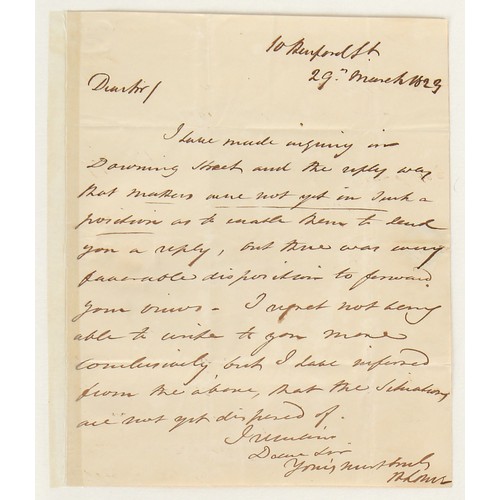 10 Hereford St.
29th March 1829
Dear Sir /
I have made inquiry in
Downing Street and the reply was
that matters were not yet in such a
position as to enable them to send
you a reply, but there was every
favorable disposition to forward
your views - I regret not being
able to write to you more
conclusively, but I have inferred
from the above, that the Situations
are not yet disposed of.
I remain
Dear Sir
Yours most truly